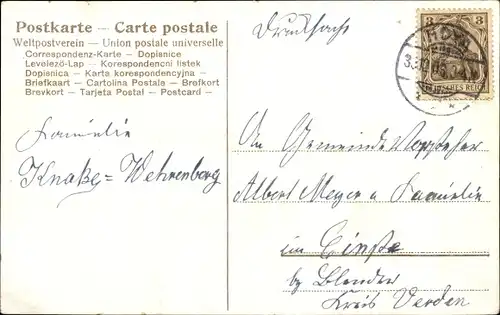 Postkarte — Carte postale
Weltpostverein — Union postale universelle
Correspondenz-Karte — Dopisnice
Levelező-Lap — Korespondencni listek
Dopisnica — Karta korespondencyjna —
Briefkaart — Cartolina Postale — Brefkort
Brevkort — Tarjeta Postal — Postcard —
Drucksache
3 3
DEUTSCHES REICH
Familie
Knake = Wehrenberg
An Gemeinde Vorsteher
Albert Meyer u Familie
in Einste
by Blender
Kreis Verden